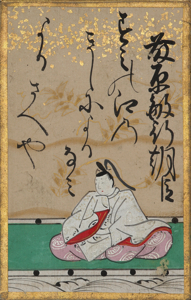 藤原敏行朝臣
すみの江乃
きしによるなみ
よるさへや